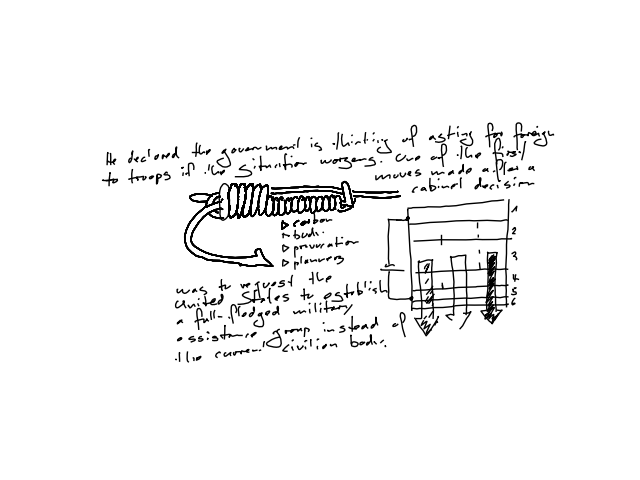 He declared the government is thinking of asting for foreign
to troops if the situation worsens. One of the first
moves made after a
cabinet decision
▷ carbon
▷ body.
▷ provocation
▷ planners
1
2
3
4
5
6
was to request the
United States to establish
a full-fledged military
assistance group instead of
the current civilian body.